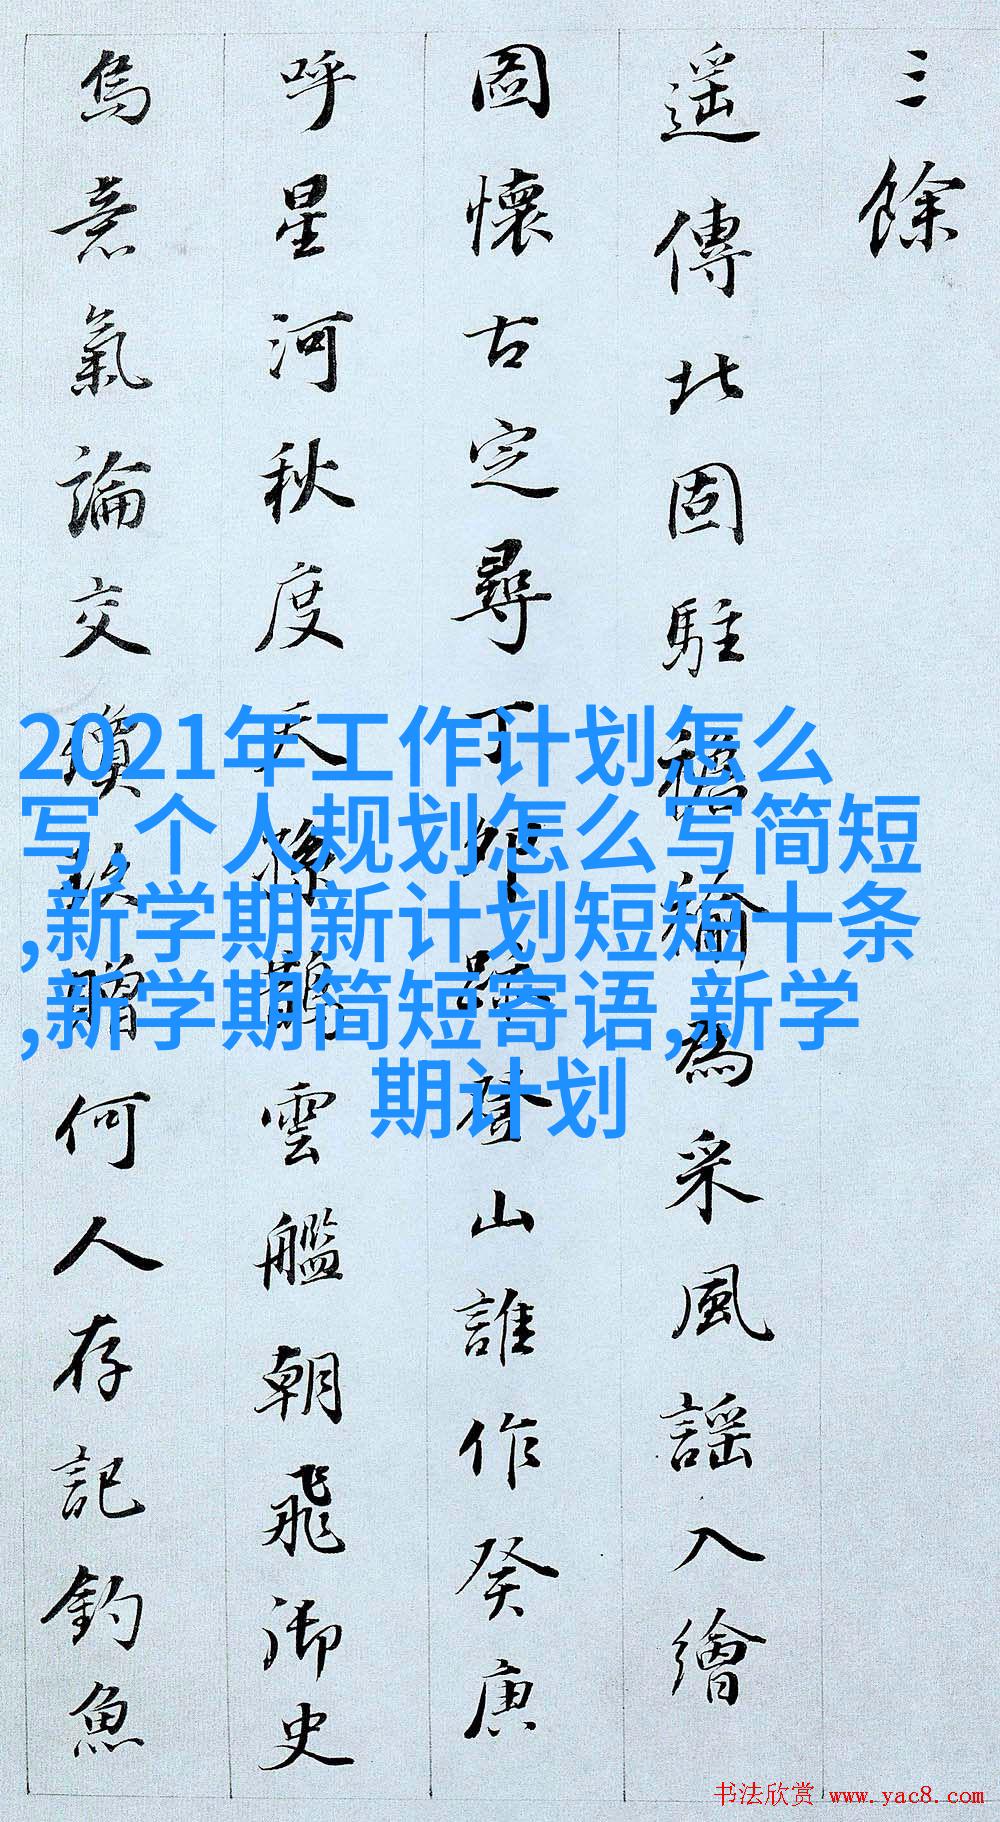 三餘
遥傳北固駐為采風謡入繪
圖懷古定尋丁卯跡登山誰作癸庚
呼星河秋度天孫鵲雲艦朝飛御史
烏意氣論交瓊玖贈何人存記釣魚
2021年工作计划怎么
写,个人规划怎么写简短
,新学期新计划短短十条
,新学期简短寄语,新学
期计划
书法欣赏 www.yac8.com